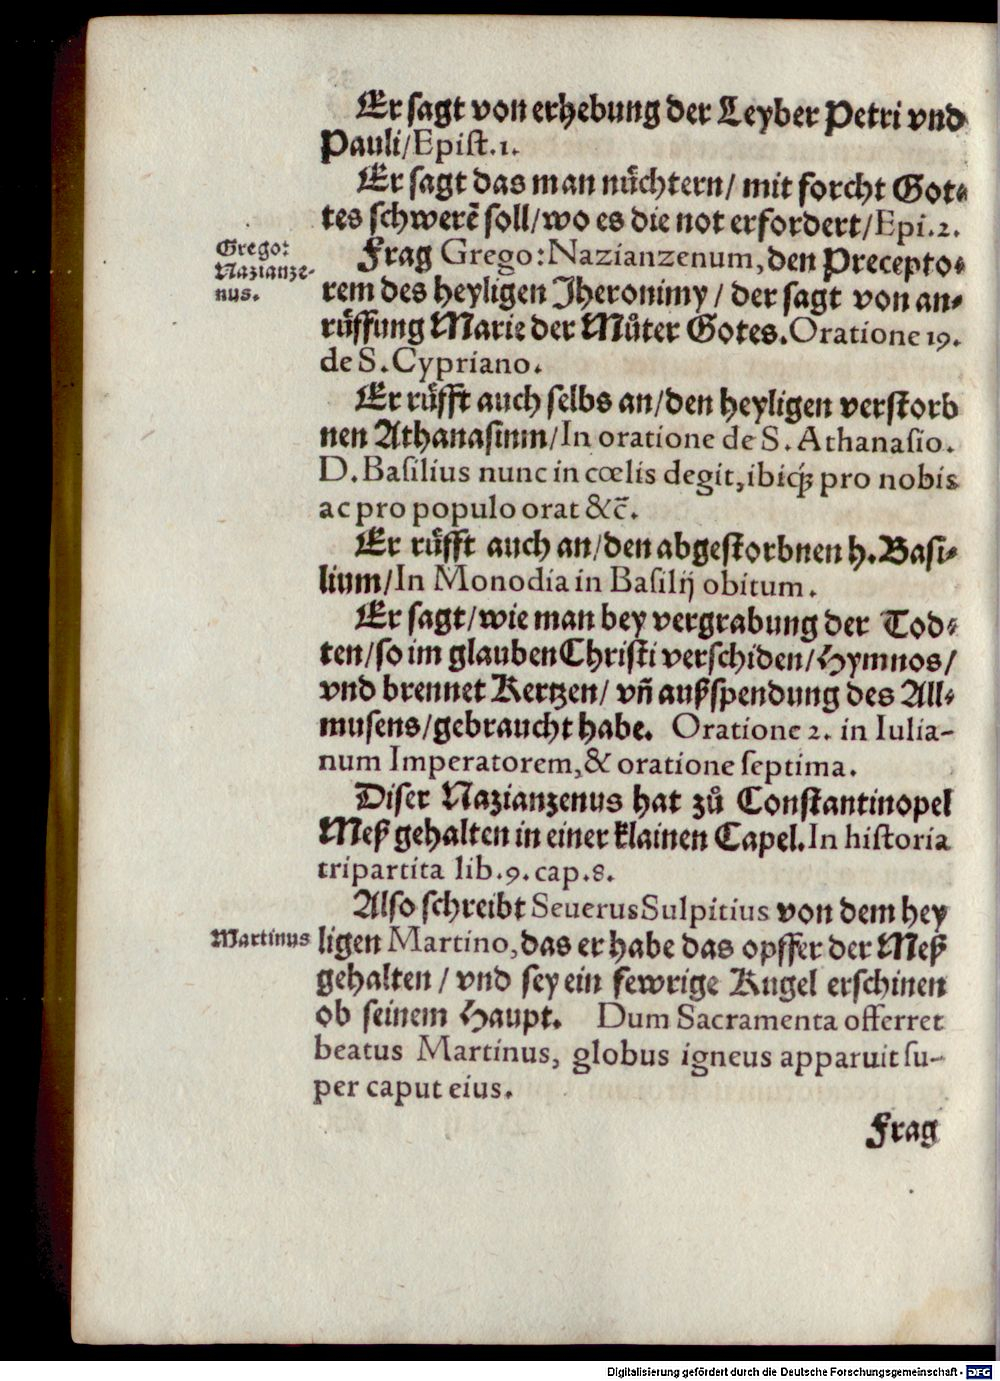 Er sagt von erhebung der Leyber Petri vnd
Pauli/Epist.1.
Er sagt das man nüchtern/ mit forcht Got⸗
tes schwerẽ soll/wo es die not erfordert/Epi.2.
Grego:
Nazianze-
nus.
Frag Grego: Nazianzenum, den Precepto⸗
rem des heyligen Jheronimy / der sagt von an⸗
rüffung Marie der Můter Gotes. Oratione 19.
de S. Cypriano.
Er rüfft auch selbs an/den heyligen verstorb
nen Athanasium/In oratione de S. Athanasio.
D. Basilius nunc in cœlis degit, ibiqꝫ pro nobis
ac pro populo orat &c̃.
Er rüfft auch an/den abgestorbnen h. Basi⸗
lium/In Monodia in Basilij obitum.
Er sagt/wie man bey vergrabung der Tod⸗
ten/so im glauben Christi verschiden/Hymnos/
vnd brennet Kertzen/ vñ außspendung des All⸗
musens/gebraucht habe. Oratione 2. in Iulia-
num Imperatorem, & oratione septima.
Diser Nazianzenus hat zů Constantinopel
Meß gehalten in einer klainen Capel. In historia
tripartita lib.9. cap.8.
Also schreibt Seuerus Sulpitius von dem hey
Martinus
ligen Martino, das er habe das opffer der Meß
gehalten / vnd sey ein fewrige Kugel erschinen
ob seinem Haupt. Dum Sacramenta offerret
beatus Martinus, globus igneus apparuit su-
per caput eius.
Frag
Digitalisierung gefördert durch die Deutsche Forschungsgemeinschaft - DFG